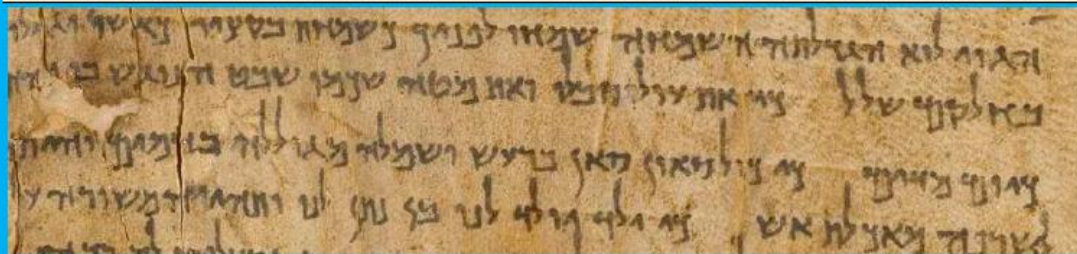 הגוי לוא הגדלתה השמחה שמחו לפניך כשמחת בקציר כאשר
בחלקם שלל כי את עול סובלו ואת מטה שכמו שבט הנוגש בו
כיום מדים כי כול סאון סאן ברעש ושמלה מגוללה בדמים והיתה
לשרפה מאכלת אש כי ילד יולד לנו בן נתן לנו ותהי המשורה